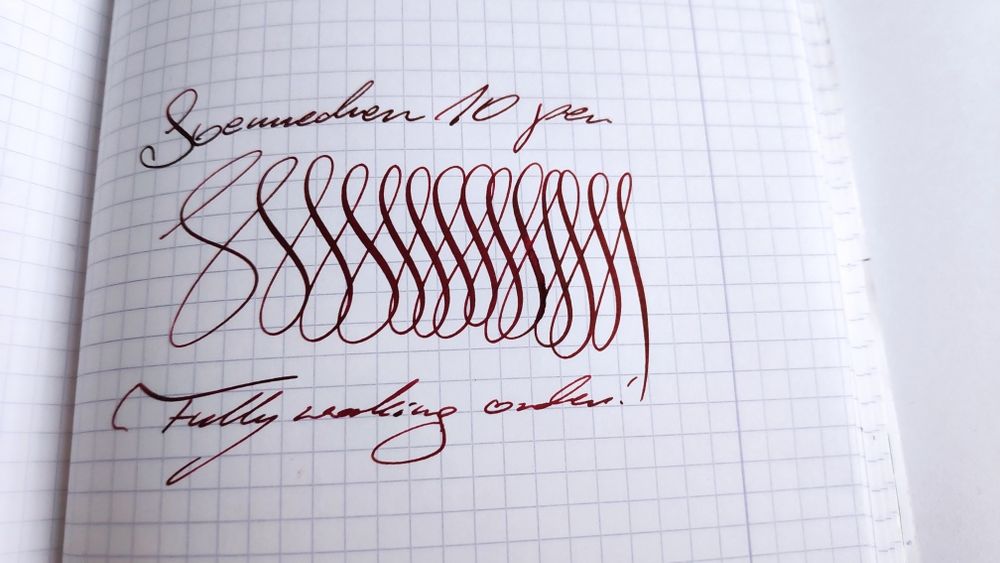 Soennecken 10 pen
Fully working order!